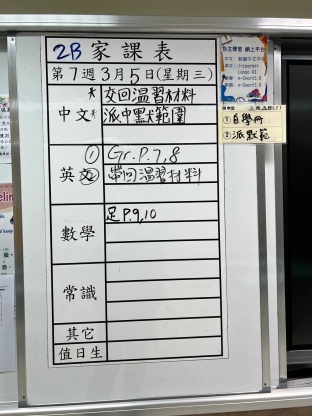 2B 家課表
第7週3月5日(星期三)
中文
* 交回溫習材料
* 派中默範圍
英文
① Gr.P.7,8
② 帶回溫習材料
數學
足P.9,10
常識
其它
值日生
自主學習 網上平台
①自學冊
②派默範